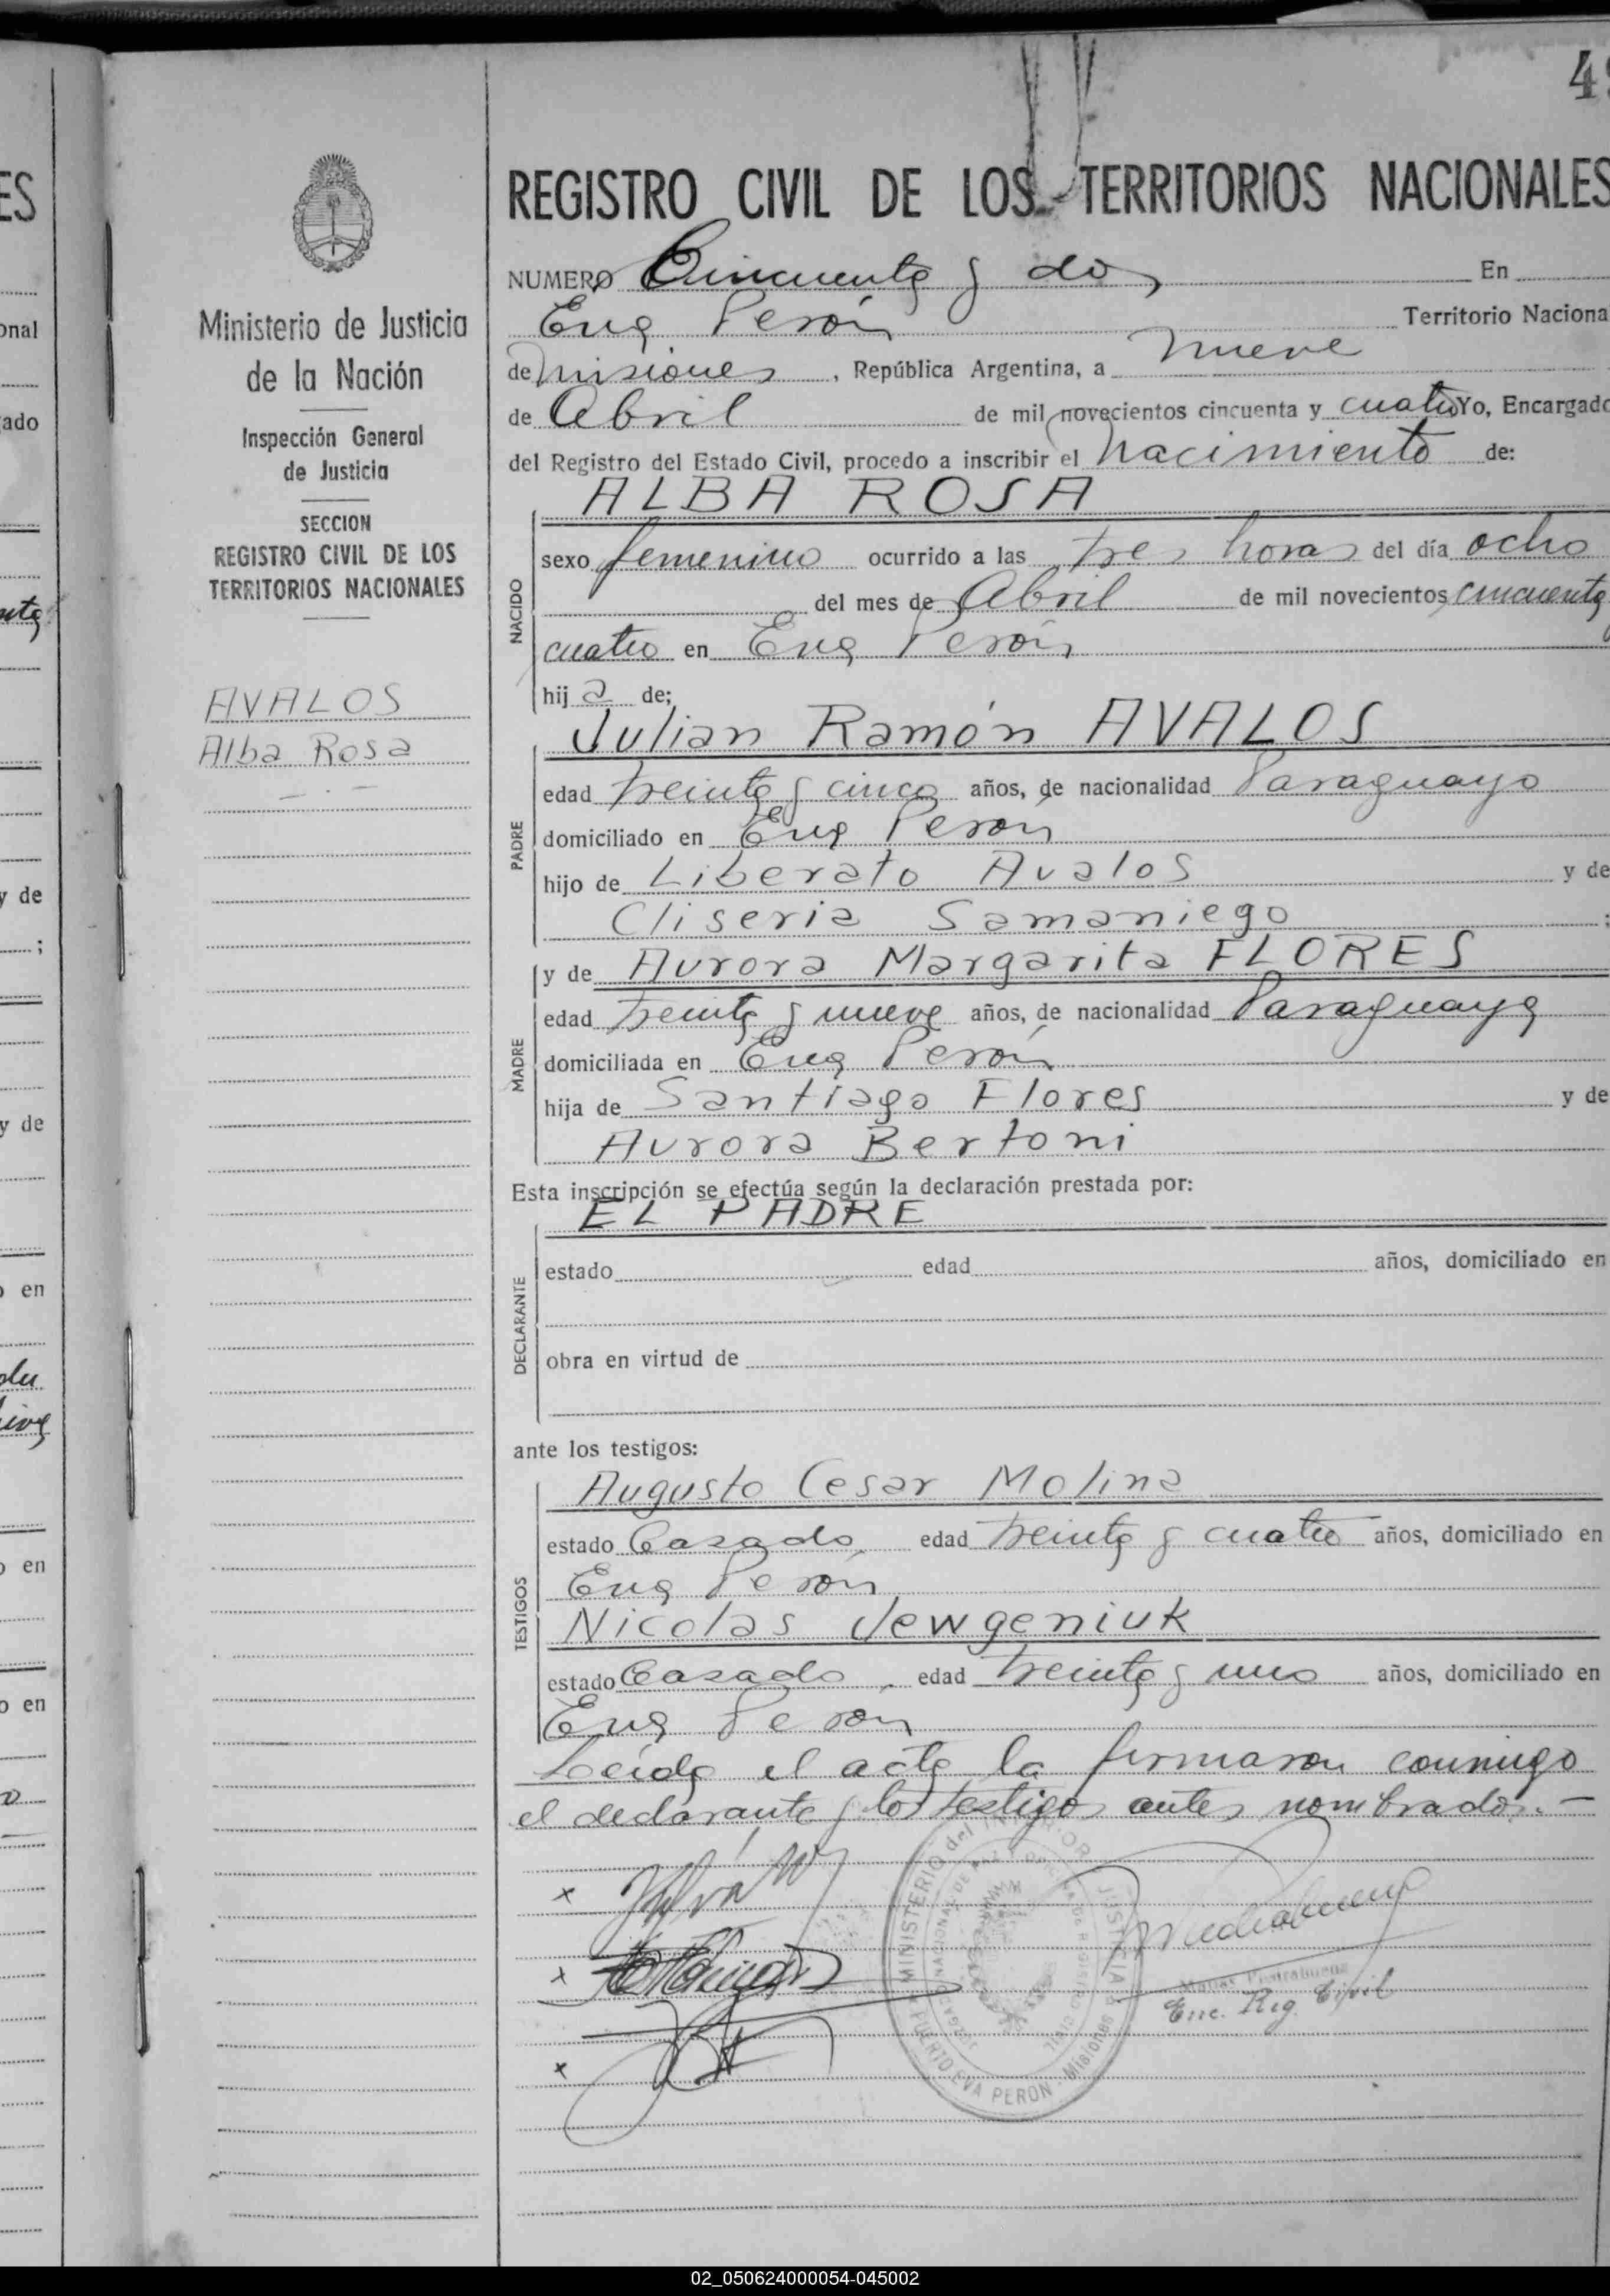 49
REGISTRO CIVIL DE LOS TERRITORIOS NACIONALES
NUMERO Cincuenta y dos En
Eva Perón Territorio Naciona
de Misiones, República Argentina, a nueve
de Abril de mil novecientos cincuenta y cuatro Yo, Encargado
del Registro del Estado Civil, procedo a inscribir el Nacimiento de:
ALBA ROSA
sexo femenino ocurrido a las tres horas del día ocho
del mes de Abril de mil novecientos cincuenta y
NACIDO
cuatro en Eva Perón
hija de;
Julian Ramón AVALOS
edad treinta y cinco años, de nacionalidad Paraguayo
PADRE
domiciliado en Eva Perón
hijo de Liberato Avalos y de
Cliseria Samaniego ;
y de Aurora Margarita FLORES
edad treinta y nueve años, de nacionalidad Paraguaya
MADRE
domiciliada en Eva Perón
hija de Santiago Flores y de
Aurora Bertoni
Esta inscripción se efectúa según la declaración prestada por:
EL PADRE
estado edad años, domiciliado en
DECLARANTE
obra en virtud de
ante los testigos:
Augusto Cesar Molina
estado Casado edad treinta y cuatro años, domiciliado en
Eva Perón
TESTIGOS
Nicolas Jewgeniuk
estado Casado, edad treinta y uno años, domiciliado en
Eva Perón
Leída el acta la firmaron conmigo
el declarante y los testigos antes nombrados.-
x
x
x
MINISTERIO del INTERIOR y JUSTICIA
PUERTO EVA PERON - Misiones
Enc. Reg. Civil
Ministerio de Justicia
de la Nación
Inspección General
de Justicia
SECCION
REGISTRO CIVIL DE LOS
TERRITORIOS NACIONALES
AVALOS
Alba Rosa
ES
onal
ado
y de
;
y de
o en
o en
o en
02_050624000054-045002